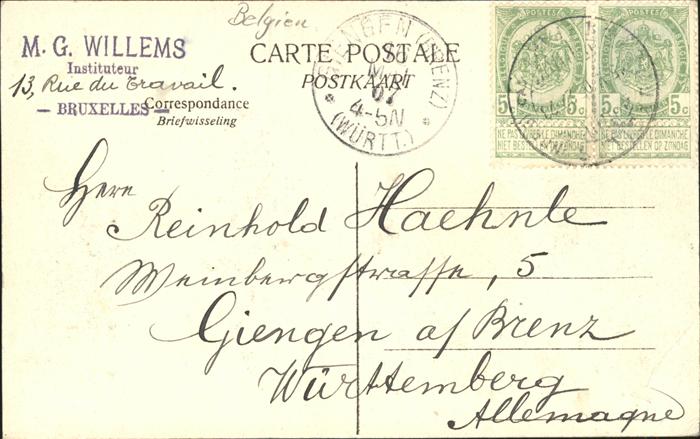 Belgien
M. G. WILLEMS
Instituteur
13, Rue du Travail.
— BRUXELLES —
CARTE POSTALE
POSTKAART
Correspondance
Briefwisseling
GIENGEN (BRENZ)
MAI
07
4-5N
* (WÜRTT.) *
POSTES
5c 5c
POSTES
5c 5c
NE PAS LIVRER LE DIMANCHE
NIET BESTELLEN OP ZONDAG
NE PAS LIVRER LE DIMANCHE
NIET BESTELLEN OP ZONDAG
Herr
Reinhold Haehnle
Weinbergstrasse, 5
Giengen a/ Brenz
Württemberg
Allemagne